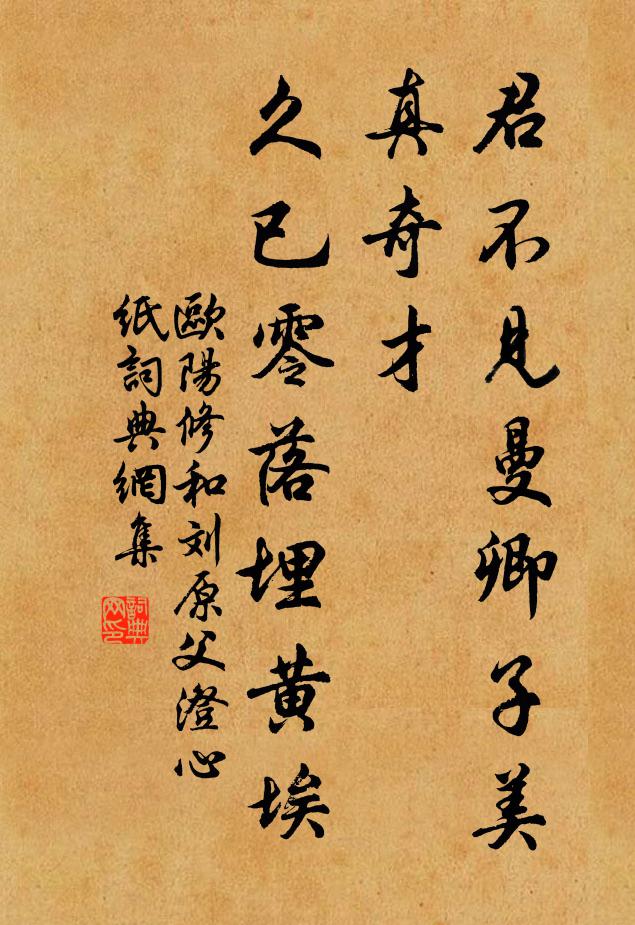 君不見曼卿子美
真奇才
久已零落埋黄埃
歐陽修和刘原父澄心
纸詞典網集
詞典
网印